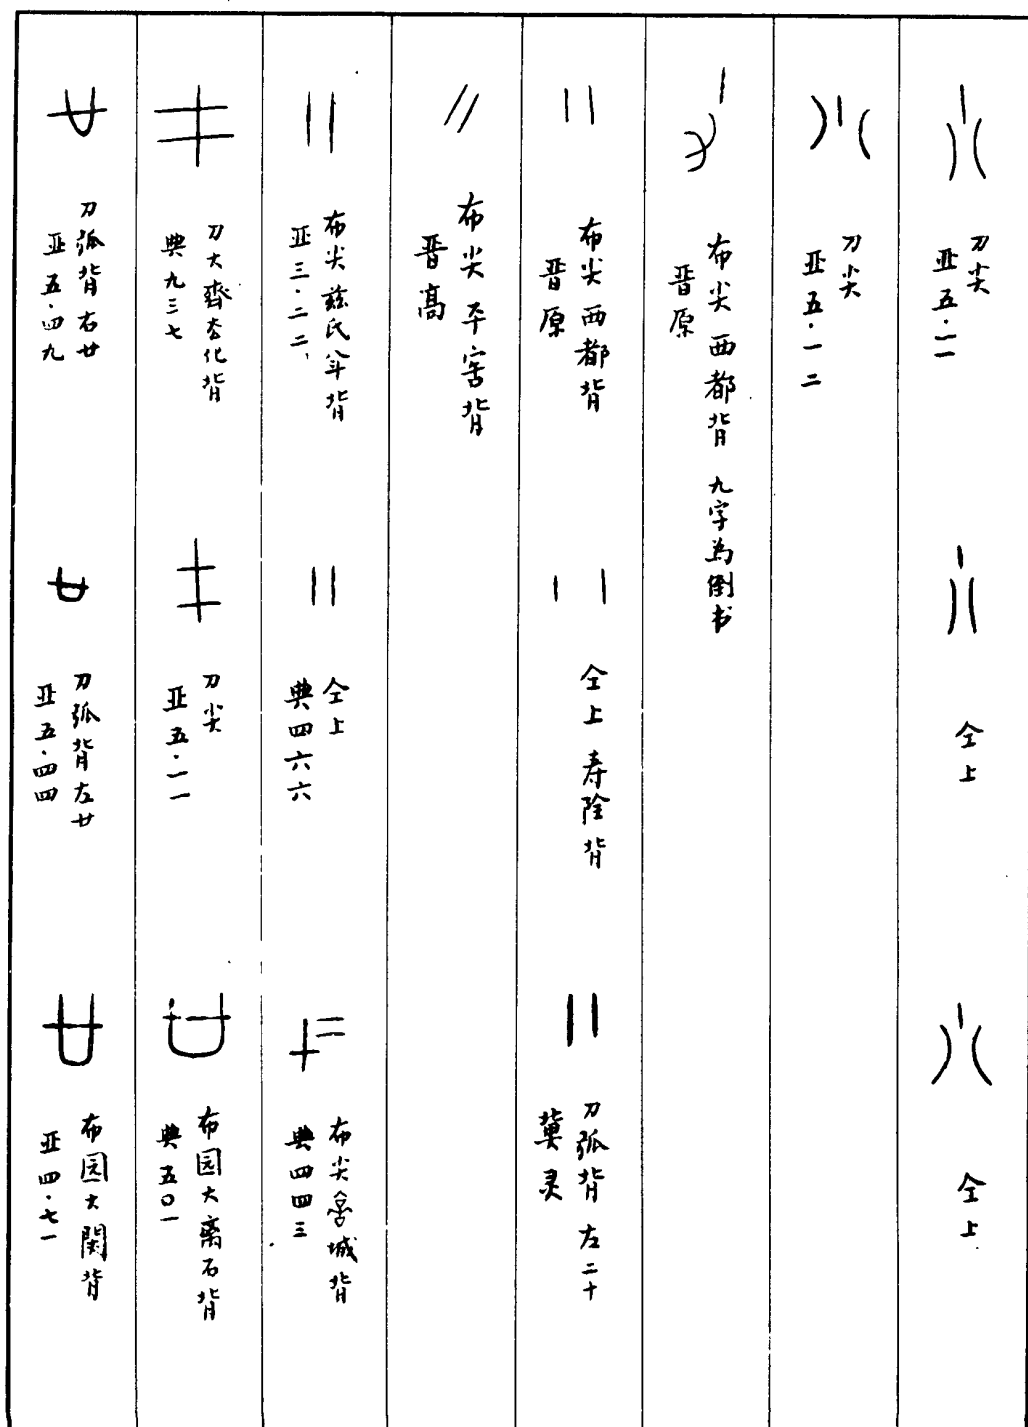 刀尖
亚五·一一
仝上
仝上
刀尖
亚五·一二
布尖西都背 九字为倒书
晋原
布尖西都背
晋原
仝上 寿陰背
刀弧背 左二十
冀灵
布尖平害背
晋高
布尖兹氏半背
亚三·二二
仝上
典四六六
布尖城背
典四四三
刀大齊厺化背
典九三七
刀尖
亚五·一一
布园大离石背
典五〇一
刀弧背右廿
亚五·四九
刀弧背左廿
亚五·四四
布园大関背
亚四·七一